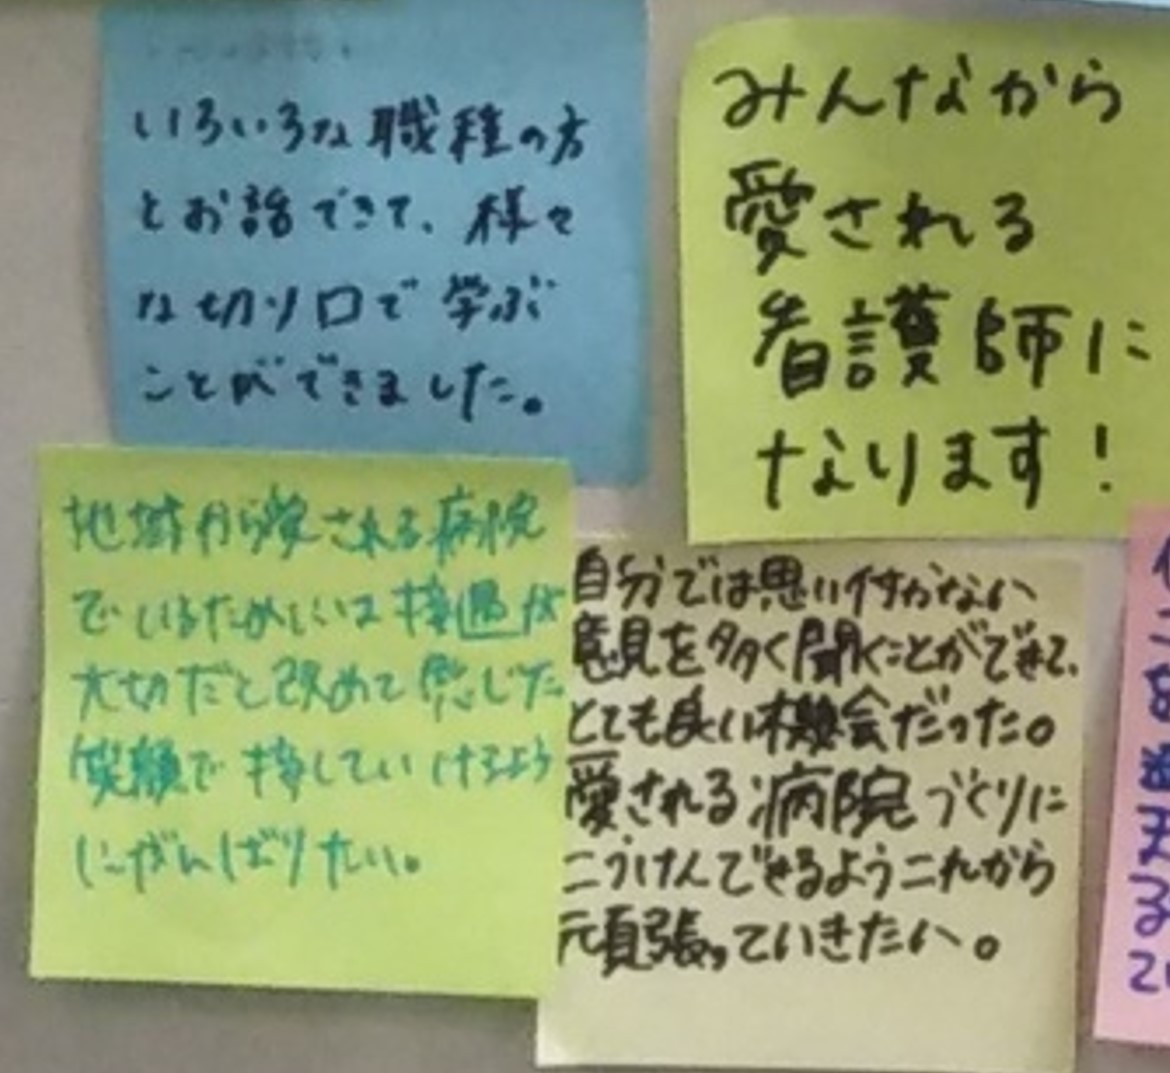 いろいろな職種の方
とお話できて、様々
な切り口で学ぶ
ことができました。
みんなから
愛される
看護師に
なります!
地域から愛される病院
でいるためには接遇が
大切だと改めて感じた
笑顔で接していけるよう
にがんばりたい。
自分では思い付かない
意見を多く聞くことができて、
とても良い機会だった。
愛される病院づくりに
こうけんできるようこれから
頑張っていきたい。